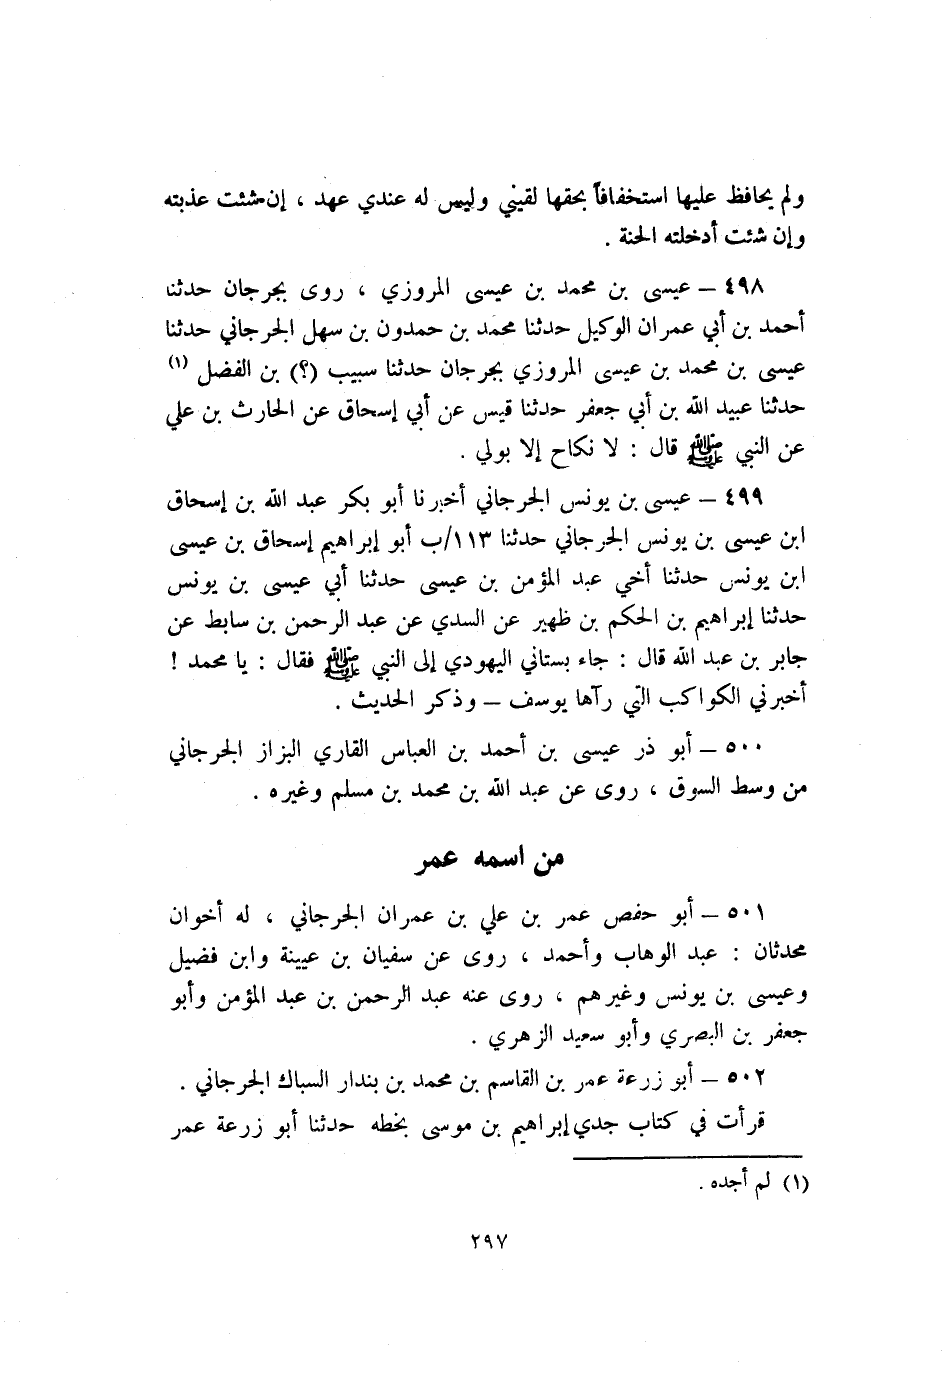 ولم يحافظ عليها استخفافاً بحقها لقيني وليس له عندي عهد ، إن شئت عذبته
وإن شئت أدخلته الجنة .
٤٩٨ – عيسى بن محمد بن عيسى المروزي ، روى بجرجان حدثنا
أحمد بن أبي عمران الوكيل حدثنا محمد بن حمدون بن سهل الجرجاني حدثنا
عيسى بن محمد بن عيسى المروزي بجرجان حدثنا سبيب (؟) بن الفضل (١)
حدثنا عبيد الله بن أبي جعفر حدثنا قيس عن أبي إسحاق عن الحارث بن علي
عن النبي ﷺ قال : لا نكاح إلا بولي .
٤٩٩ – عيسى بن يونس الجرجاني أخبرنا أبو بكر عبد الله بن إسحاق
ابن عيسى بن يونس الجرجاني حدثنا ١١٣/ب أبو إبراهيم إسحاق بن عيسى
ابن يونس حدثنا أخي عبد المؤمن بن عيسى حدثنا أبي عيسى بن يونس
حدثنا إبراهيم بن الحكم بن ظهير عن السدي عن عبد الرحمن بن سابط عن
جابر بن عبد الله قال : جاء بستاني اليهودي إلى النبي ﷺ فقال : يا محمد !
أخبرني الكواكب التي رآها يوسف – وذكر الحديث .
٥٠٠ – أبو ذر عيسى بن أحمد بن العباس القاري البزاز الجرجاني
من وسط السوق ، روى عن عبد الله بن محمد بن مسلم وغيره .
من اسمه عمر
٥٠١ – أبو حفص عمر بن علي بن عمران الجرجاني ، له أخوان
محدثان : عبد الوهاب وأحمد ، روى عن سفيان بن عيينة وابن فضيل
وعيسى بن يونس وغيرهم ، روى عنه عبد الرحمن بن عبد المؤمن وأبو
جعفر بن البصري وأبو سعيد الزهري .
٥٠٢ – أبو زرعة عمر بن القاسم بن محمد بن بندار السباك الجرجاني .
قرأت في كتاب جدي إبراهيم بن موسى بخطه حدثنا أبو زرعة عمر
(١) لم أجده .
٢٩٧